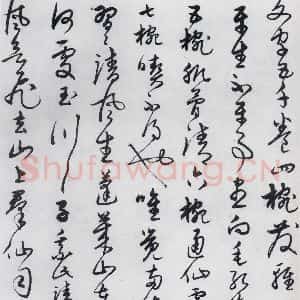 文字五千卷四椀發輕
平生不平事盡向毛孔
五椀肌骨清六椀通仙靈
七椀喫不得也唯覺兩
習清風生蓬萊山在
何處玉川子乘此清
風欲歸去山上羣仙司
Shufawang.CN